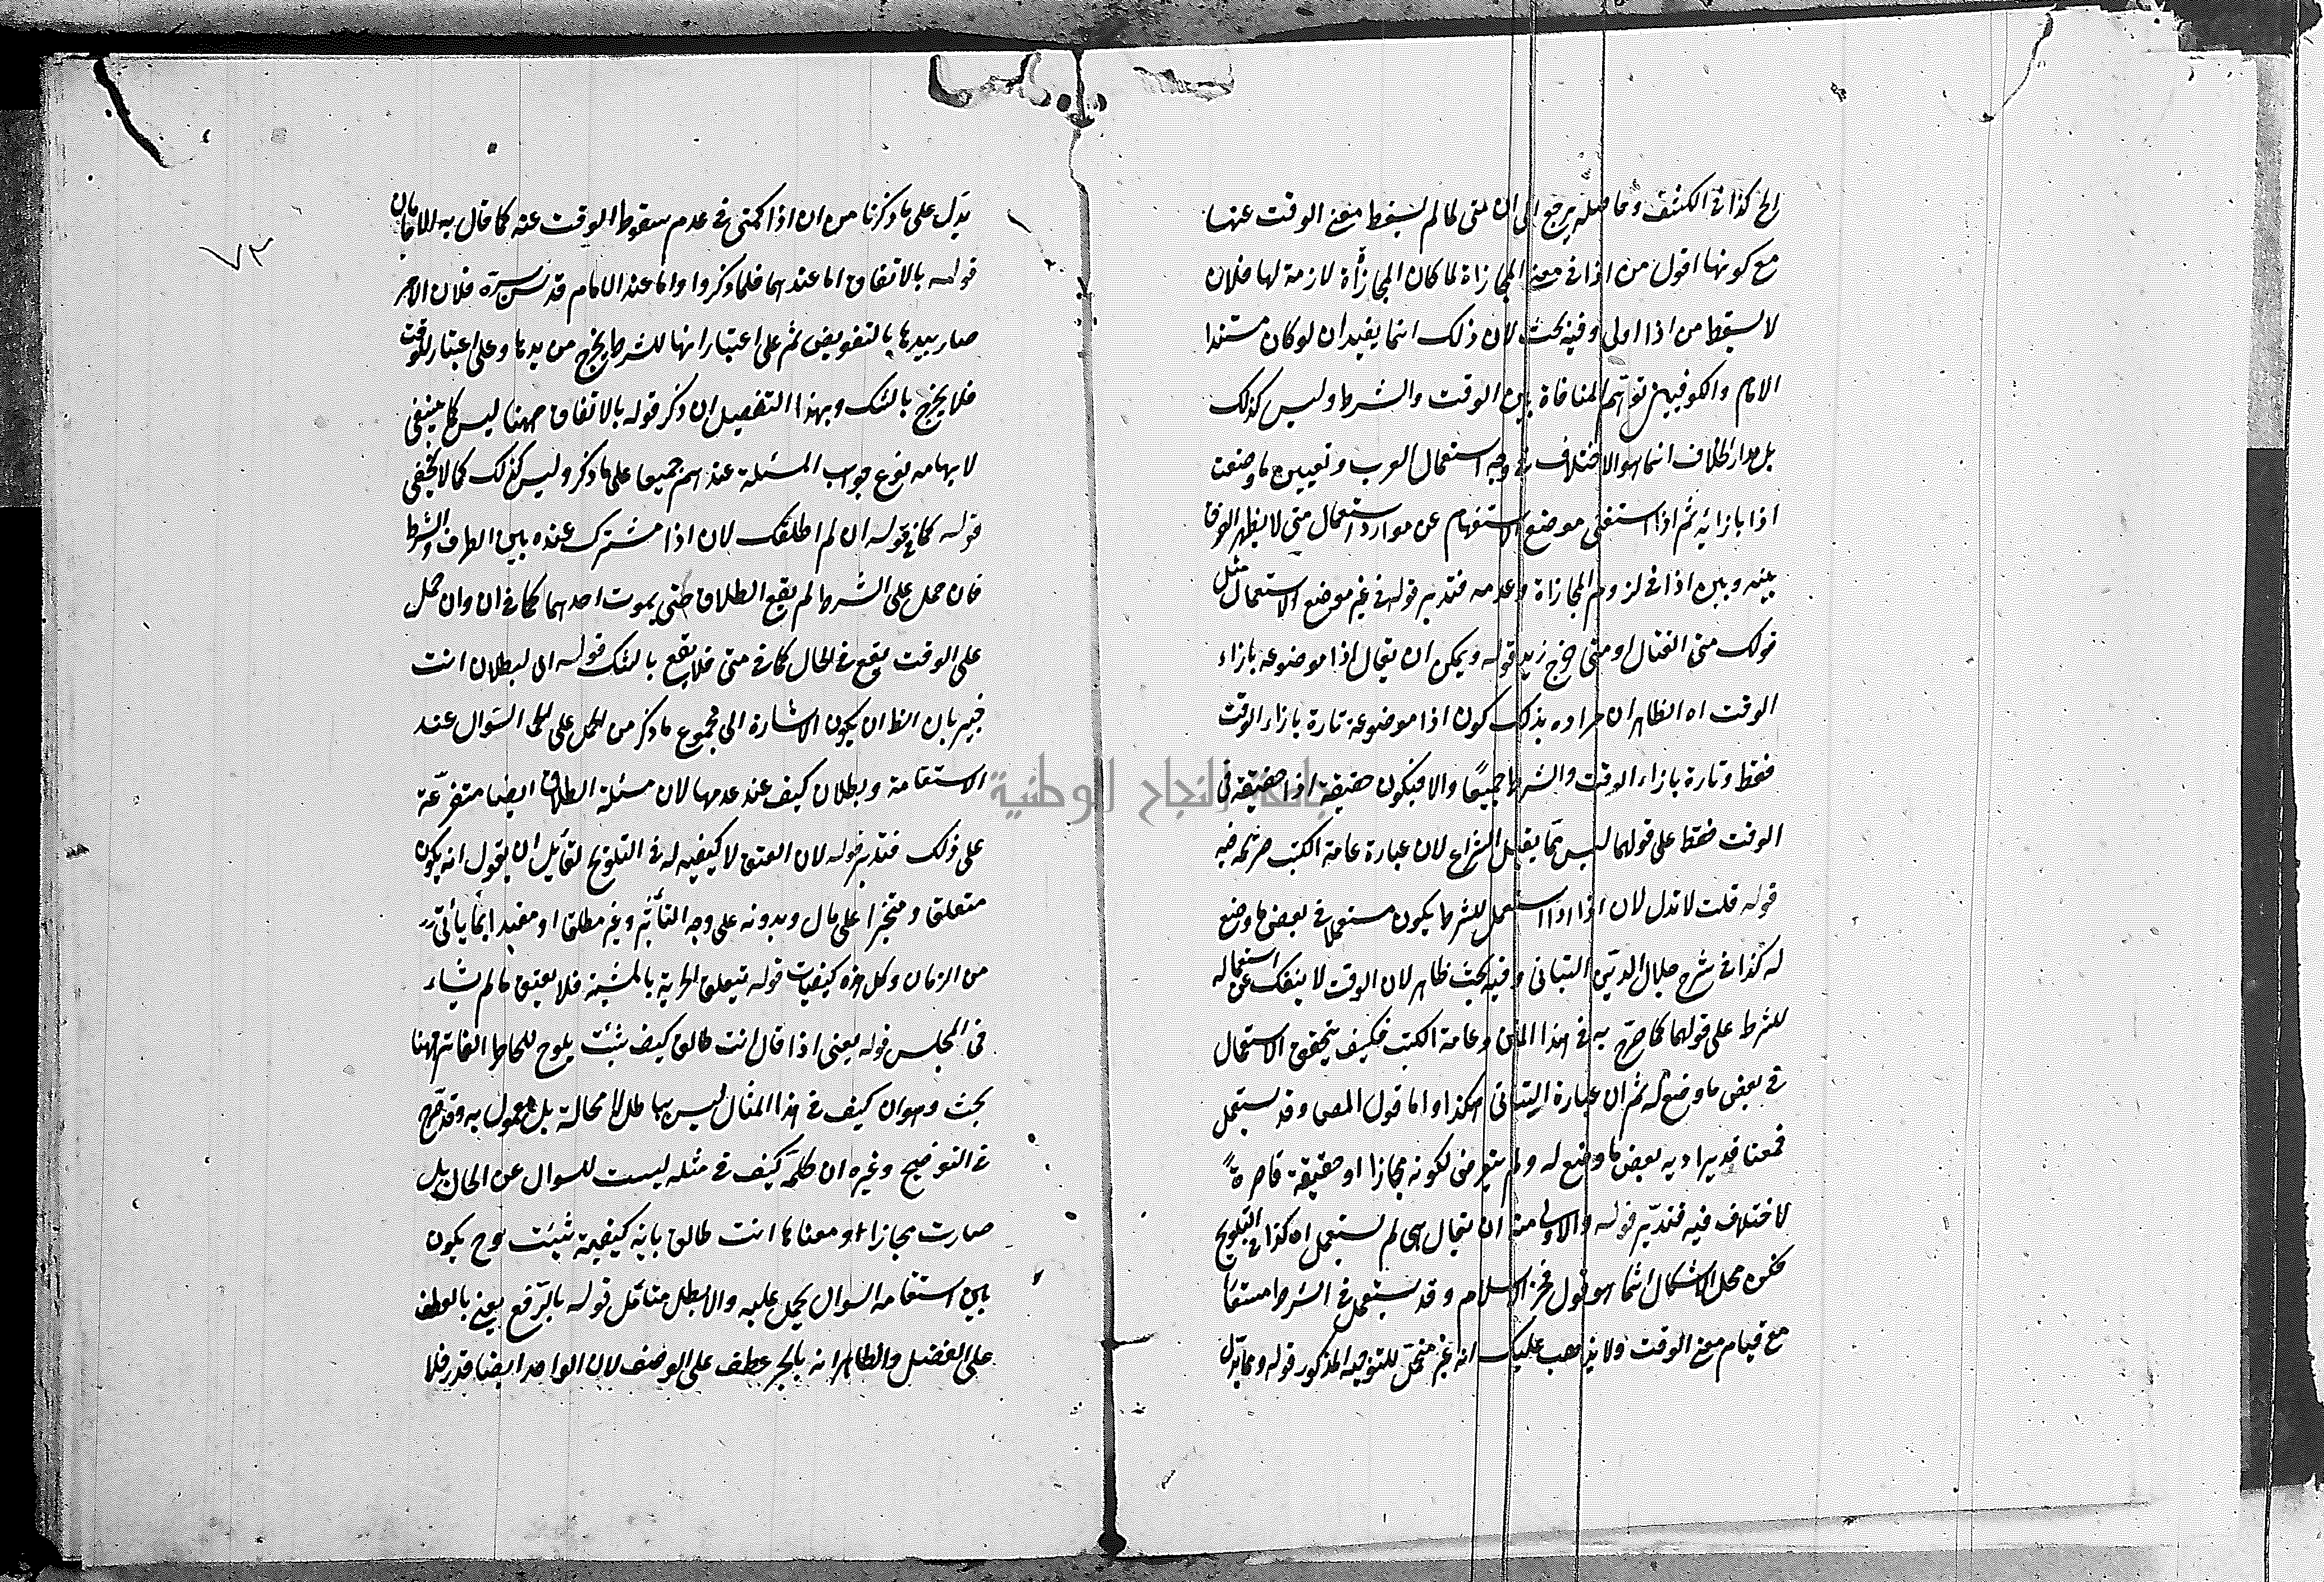 الخ كذا في الكشف وحاصله يرجع الى ان متى لما لم يسقط معنى الوقت عنها
مع كونها اقول من اذا في معنى المجازاة لما كان المجازاة لازمة لها فلان
لا يسقط من اذا اولى وفيه بحث لان ذلك انما يفيد ان لو كان مستندا
الامام والكوفيين توهم المنافاة بين الوقت والشرط وليس كذلك
بل مدار الخلاف انما هو الاختلاف في وجه استعمال العرب وتعيين ما وضعت
اذا بازائه ثم اذا استفتى موضع الاستفهام عن موارد استعمال متى لا يظهر الفرق
بينه وبين اذا في لزوم المجازاة وعدمه فتدبر قوله في غير موضع الاستعمال مثل
قولك متى القتال او متى خرج زيد قوله ويمكن ان يقال اذا موضوعة بازاء
الوقت اه الظاهر ان مراده بذلك كون اذا موضوعة تارة بازاء الوقت
فقط وتارة بازاء الوقت والشرط جميعا والا فيكون حقيقة اذا حقيقة في
الوقت فقط على قولهما ليس مما يقبل النزاع لان عبارة عامة الكتب صريحة فيه
قوله قلت لا تدل لان اذا اذا استعمل للشرط يكون مستعملا في بعض ما وضع
له كذا في شرح جلال الدين التباني وفيه بحث ظاهر لان الوقت لا ينفك عن استعماله
للشرط على قولهما كما صرح به في هذا المتن وعامة الكتب فكيف يتحقق الاستعمال
في بعض ما وضع له ثم ان عبارة التباني هكذا واما قول المص وقد يستعمل
فمعنا قد يراد به بعض ما وضع له ولم يتعرض لكونه مجازا او حقيقة قاصرة
لاختلاف فيه فتدبر قوله والاولى منه ان يقال هي لم يستعمل اه كذا في التلويح
لكن محل الاشكال انما هو قول فخر الاسلام وقد يستعمل في الشرط مستقا
مع قيام معنى الوقت ولا يذهب عليك انه غير متحمل للتوجيه المذكور قوله ومما يدل
٧٣
يدل على ما ذكرنا من ان اذا كمتى في عدم سقوط الوقت عنه كما قال به الامامان
قوله بالاتفاق اما عندهما فلما ذكروا واما عند الامام قدس سره فلان الامر
صار بيدها بالتفويض ثم على اعتبار انها للشرط يخرج من يدها وعلى اعتبار للوقت
فلا يخرج بالشك وبهذا التفصيل ان ذكر قوله بالاتفاق ههنا ليس كما ينبغي
لايهامه نوع جواب المسئلة عندهم جميعا على ما ذكر وليس كذلك كما لا يخفى
قوله كما في قوله ان لم اطلقك لان اذا مشترك عنده بين الظرف والشرط
فان حمل على الشرط لم يقع الطلاق حتى يموت احدهما كما في ان وان حمل
على الوقت يقع في الحال كما في متى فلا يقع بالشك قوله اى لبطلان انت
خبير بان الظ ان يكون الاشارة الى مجموع ما ذكر من الحمل على السؤال عند
الاستقامة وبطلان كيف عند عدمها لان مسئلة الطلاق ايضا متفرعة
على ذلك فتدبر قوله لان العتق لا كيفية له في التلويح لقائل ان يقول انه يكون
متعلقا ومنجزا على مال وبدونه على وجه التأثير وغير مطلقا او مقيدا بما يأتى
من الزمان وكل هذه كيفيات قوله يتعلق الحرية بالمشيئة فلا يعتق ما لم يشاء
في المجلس قوله يعنى اذا قال انت طالق كيف شئت يلوح للخاطر الفاتر ههنا
بحث وهو ان كيف في هذا المثال ليس بباطل لا محالة بل معمول به وقد صرح
في التوضيح وغيره ان كلمة كيف في مثله ليست للسوال عن الحال بل
صارت مجازا ومعناها انت طالق باية كيفية شئت فوح يكون
بين استقامة السوال يحمل عليه والا بطل متأمل قوله بالرفع يعنى بالعطف
على الفضل والظاهر انه بالجر عطف على الوصف لان الواحد ايضا قدر فلا
جامعة النجاح الوطنية